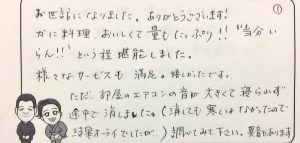 ①
お世話になりました。ありがとうございます!
かに料理、おいしくて量もたっぷり!!"当分い
らん!!"という程堪能しました。
様々なサービスも満足。嬉しかったです。
ただ、部屋のエアコンの音が大きくて寝られず
途中で消しました。(消しても寒くはなかったので
結果オーライでしたが、)調べてみて下さい。異音があります